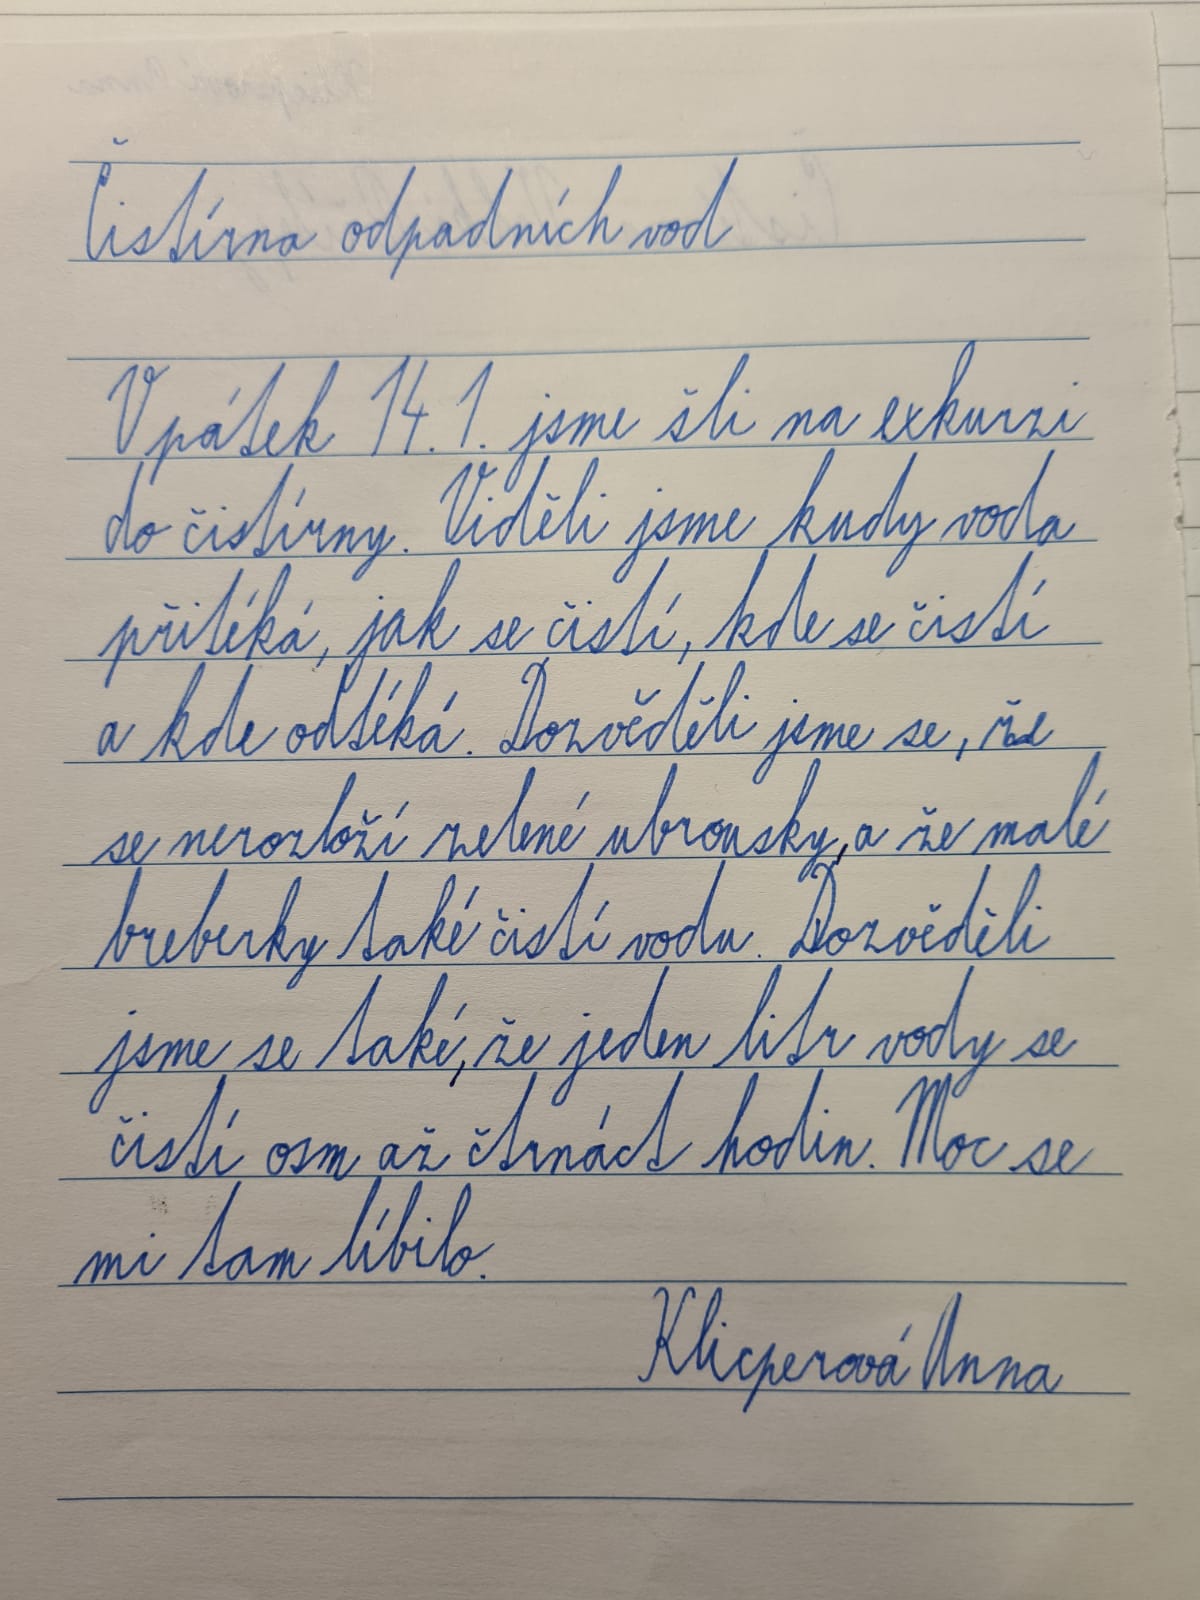 Čistírna odpadních vod
V pátek 14. 1. jsme šli na exkurzi
do čistírny. Viděli jsme kudy voda
přitéká, jak se čistí, kde se čistí
a kde odtéká. Dozvěděli jsme se, že
se nerozloží zelené ubrousky, a že malé
breberky také čistí vodu. Dozvěděli
jsme se také, že jeden litr vody se
čistí osm až čtrnáct hodin. Moc se
mi tam líbilo.
Klicperová Anna